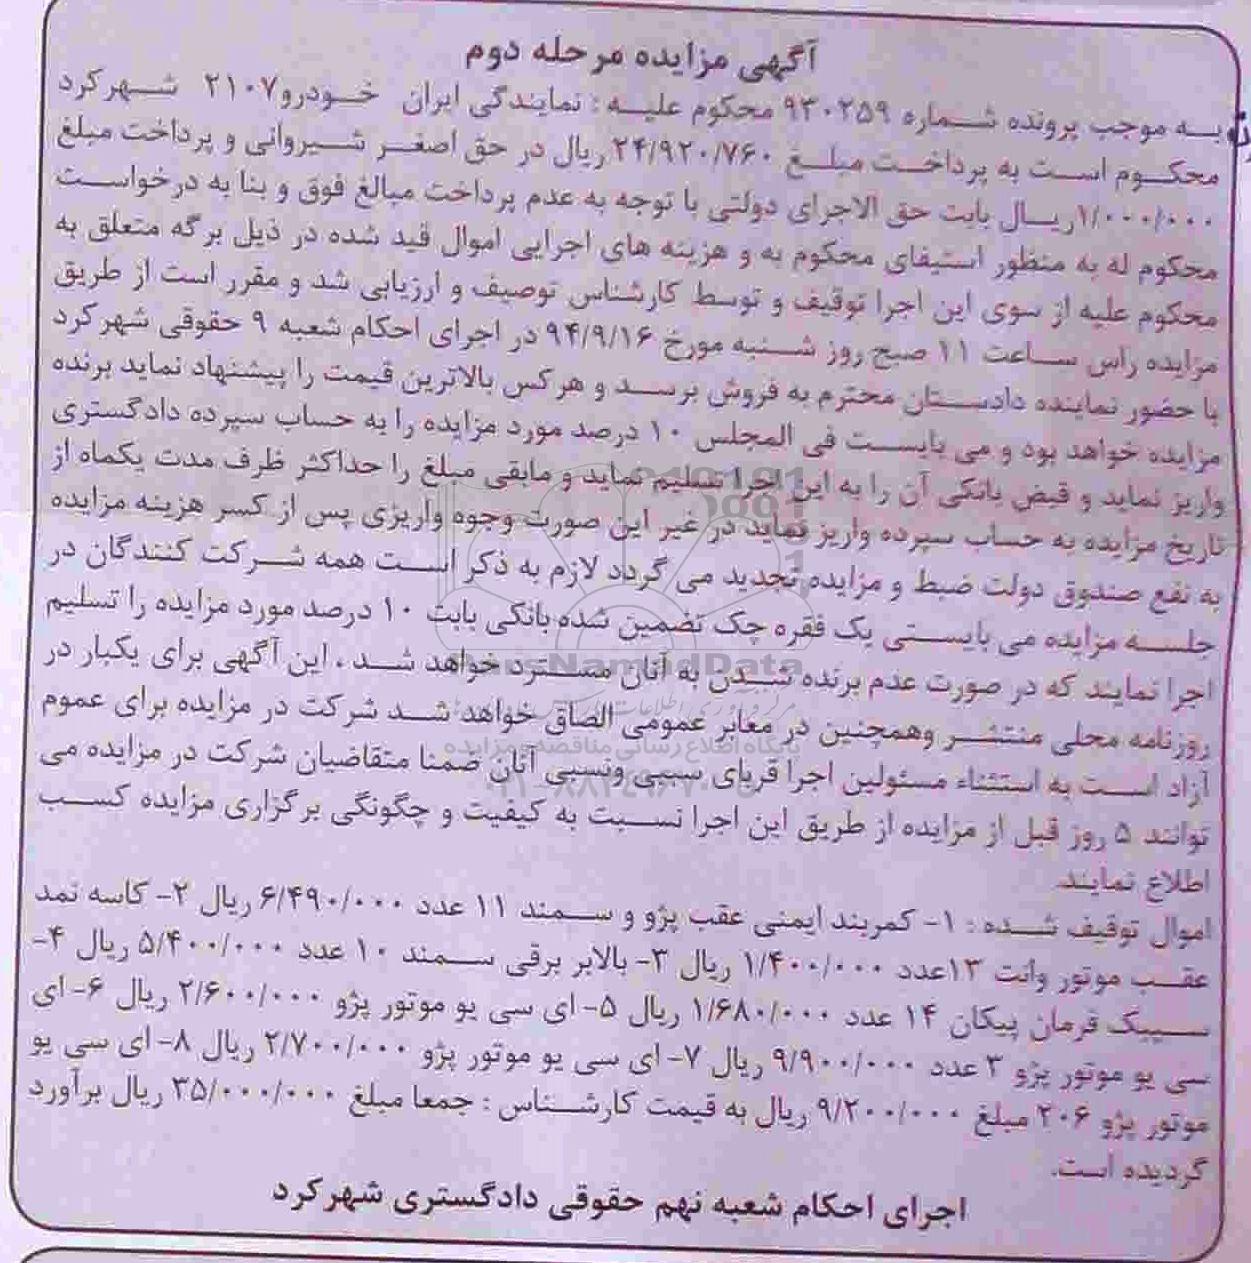 آگهی مزایده مرحله دوم
به موجب پرونده شماره ۹۳۰۲۵۹ محکوم علیه : نمایندگی ایران خودرو۲۱۰۷ شهرکرد
محکوم است به پرداخت مبلغ ۲۴/۹۲۰/۷۶۰ ریال در حق اصغر شیروانی و پرداخت مبلغ
۱/۰۰۰/۰۰۰ریال بابت حق الاجرای دولتی با توجه به عدم پرداخت مبالغ فوق و بنا به درخواست
محکوم له به منظور استیفای محکوم به و هزینه های اجرایی اموال قید شده در ذیل برگه متعلق به
محکوم علیه از سوی این اجرا توقیف و توسط کارشناس توصیف و ارزیابی شد و مقرر است از طریق
مزایده راس ساعت ۱۱ صبح روز شنبه مورخ ۹۴/۹/۱۶ در اجرای احکام شعبه ۹ حقوقی شهرکرد
با حضور نماینده دادستان محترم به فروش برسد و هرکس بالاترین قیمت را پیشنهاد نماید برنده
مزایده خواهد بود و می بایست فی المجلس ۱۰ درصد مورد مزایده را به حساب سپرده دادگستری
واریز نماید و قبض بانکی آن را به این اجرا تسلیم نماید و مابقی مبلغ را حداکثر ظرف مدت یکماه از
تاریخ مزایده به حساب سپرده واریز نماید در غیر این صورت وجوه واریزی پس از کسر هزینه مزایده
به نفع صندوق دولت ضبط و مزایده تجدید می گردد لازم به ذکر است همه شرکت کنندگان در
جلسه مزایده می بایستی یک فقره چک تضمین شده بانکی بابت ۱۰ درصد مورد مزایده را تسلیم
اجرا نمایند که در صورت عدم برنده شدن به آنان مسترد خواهد شد . این آگهی برای یکبار در
روزنامه محلی منتشر وهمچنین در معابر عمومی الصاق خواهد شد شرکت در مزایده برای عموم
آزاد است به استثناء مسئولین اجرا قربای سببی ونسبی آنان ضمنا متقاضیان شرکت در مزایده می
توانند ۵ روز قبل از مزایده از طریق این اجرا نسبت به کیفیت و چگونگی برگزاری مزایده کسب
اطلاع نمایند.
اموال توقیف شده : ۱- کمربند ایمنی عقب پژو و سمند ۱۱ عدد ۶/۴۹۰/۰۰۰ ریال ۲- کاسه نمد
عقب موتور وانت ۱۳عدد ۱/۴۰۰/۰۰۰ ریال ۳- بالابر برقی سمند ۱۰ عدد ۵/۴۰۰/۰۰۰ ریال ۴-
سیبک فرمان پیکان ۱۴ عدد ۱/۶۸۰/۰۰۰ ریال ۵- ای سی یو موتور پژو ۲/۶۰۰/۰۰۰ ریال ۶- ای
سی یو موتور پژو ۳ عدد ۹/۹۰۰/۰۰۰ ریال ۷- ای سی یو موتور پژو ۲/۷۰۰/۰۰۰ ریال ۸- ای سی یو
موتور پژو ۲۰۶ مبلغ ۹/۲۰۰/۰۰۰ ریال به قیمت کارشناس : جمعا مبلغ ۳۵/۰۰۰/۰۰۰ ریال برآورد
گردیده است.
اجرای احکام شعبه نهم حقوقی دادگستری شهرکرد
ParsNamadData
پایگاه اطلاع رسانی مناقصه و مزایده